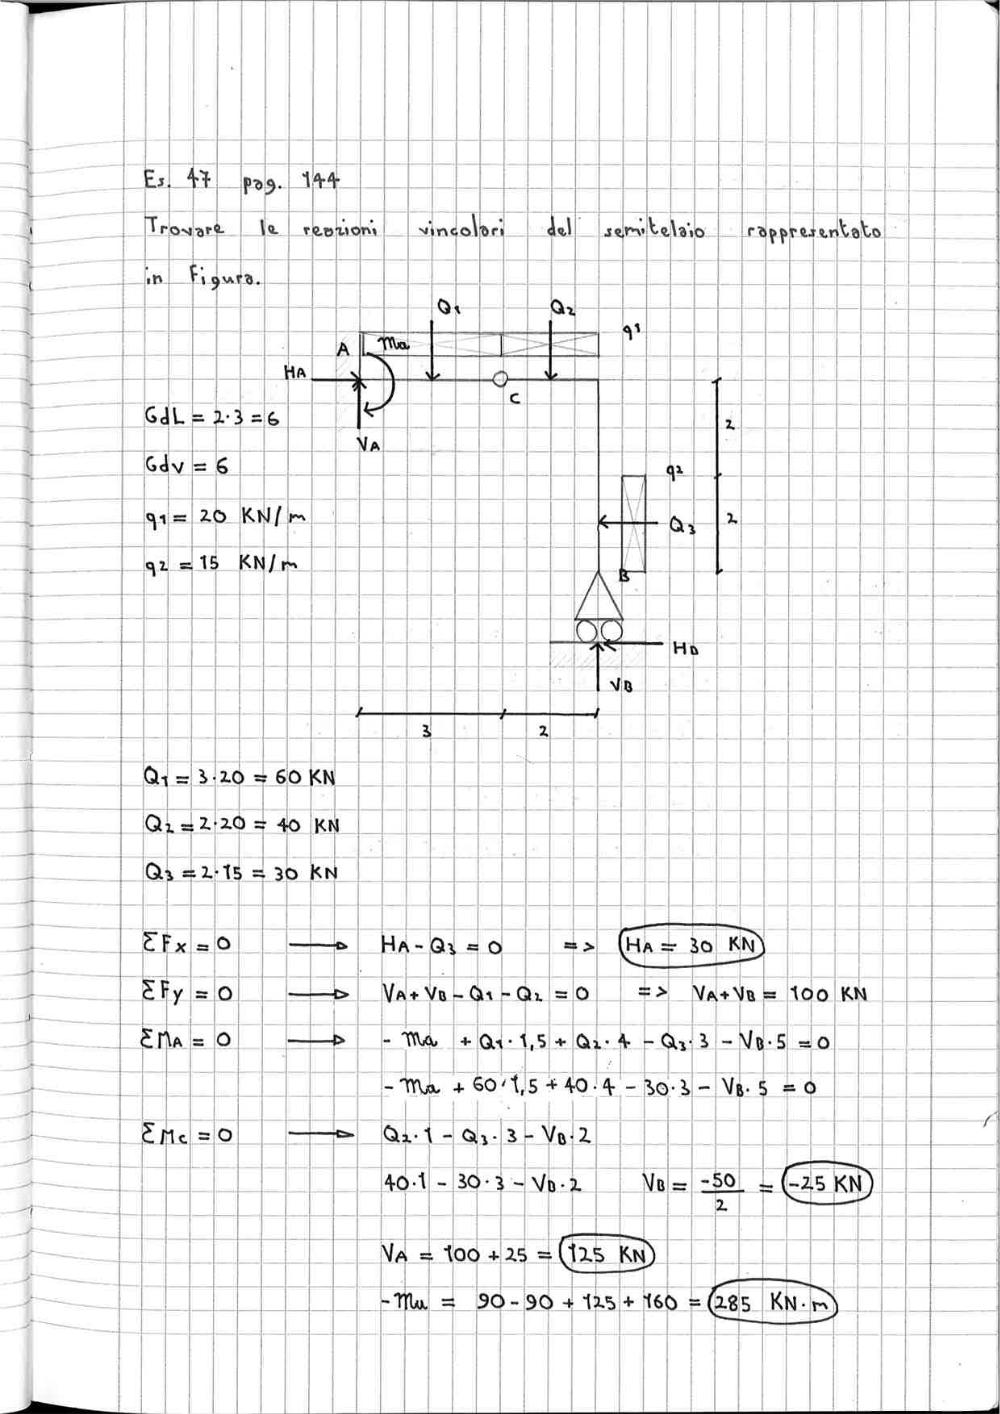 Es. 47 pag. 144
Trovare le reazioni vincolari del semitelaio rappresentato
in Figura.
Q1 Q2
q1
A Ma
HA
C
GdL = 2·3 = 6
2
VA
Gdv = 6
q2
q1 = 20 KN/m
Q3 2
q2 = 15 KN/m
B
HB
VB
3 2
Q1 = 3·20 = 60 KN
Q2 = 2·20 = 40 KN
Q3 = 2·15 = 30 KN
ΣFx = 0 → HA - Q3 = 0 => HA = 30 KN
ΣFy = 0 → VA + VB - Q1 - Q2 = 0 => VA + VB = 100 KN
ΣMA = 0 → - Ma + Q1·1,5 + Q2·4 - Q3·3 - VB·5 = 0
- Ma + 60·1,5 + 40·4 - 30·3 - VB·5 = 0
ΣMc = 0 → Q2·1 - Q3·3 - VB·2
40·1 - 30·3 - VB·2 VB = -50/2 = -25 KN
VA = 100 + 25 = 125 KN
-Ma = 90 - 90 + 125 + 160 = 285 KN·m